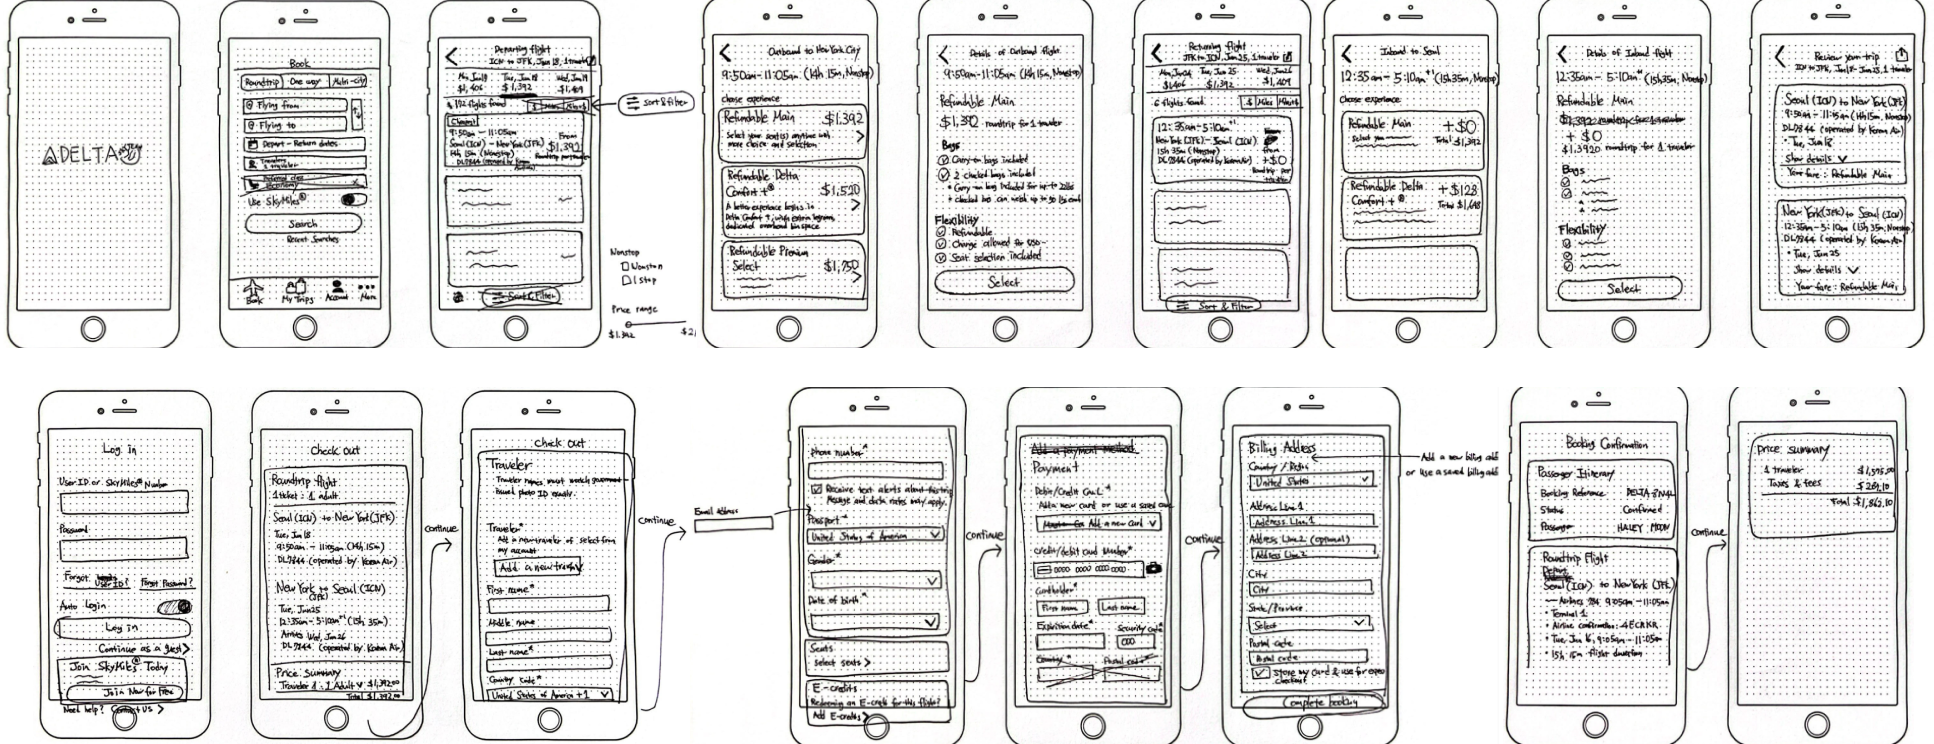 DELTA
Book
Roundtrip One way Multi-city
Flying from
Flying to
Depart - Return dates
1 traveler
Use SkyMiles®
Search
Recent Searches
Book My Trips Account More
Departing flight
ICN to JFK, Jun 18, 1 traveler
Tue, Jun 18 Wed, Jun 19
$1,406 $1,392 $1,409
192 flights found
9:50am - 11:05am
From
Seoul (ICN) - New York (JFK) $1,392
14h 15m (Nonstop)
Sort & Filter
Sort & filter
Nonstop
1 stop
Price range
$1,392
Outbound to New York City
9:50am-11:05am (14h 15m, Nonstop)
Choose experience
Refundable Main $1,392
Select your seat(s) anytime with
more choice and selection
Refundable Delta
Comfort +® $1,520
A better experience begins in
Delta Comfort +, with extra legroom,
dedicated overhead bin space
Refundable Premium
Select $1,750
Details of Outbound flight
9:50am-11:05am (14h 15m, Nonstop)
Refundable Main
$1,392 roundtrip for 1 traveler
Bags
Carry-on bags included
2 checked bags included
Flexibility
Refundable
Seat selection included
Select
Returning flight
JFK to ICN, Jun 25, 1 traveler
Mon, Jun 24 Tue, Jun 25 Wed, Jun 26
$1,406 $1,392 $1,409
6 flights found $ Miles
12:35am-5:10am+1
New York (JFK) - Seoul (ICN)
from
15h 35m (Nonstop)
+$0
DL7844 (operated by Korean Air)
Sort & Filter
Inbound to Seoul
12:35am - 5:10am+1 (15h 35m, Nonstop)
Choose experience
Refundable Main +$0
Total $1,392
Refundable Delta +$128
Comfort +®
Details of Inbound flight
12:35am - 5:10am+1 (15h 35m, Nonstop)
Refundable Main
+ $0
$1,3920 roundtrip for 1 traveler
Bags
Flexibility
Select
Review your trip
Seoul (ICN) to New York (JFK)
DL7844 (operated by Korean Air)
• Tue, Jun 18
Show details
Your fare : Refundable Main
New York (JFK) to Seoul (ICN)
12:35am - 5:10am (15h 35m, Nonstop)
DL7844 (operated by Korean Air)
• Tue, Jun 25
Show details
Your fare : Refundable Main
Log in
User ID or SkyMiles® Number
Password
Forgot User ID? Forgot Password?
Auto Login
Log in
Continue as a guest >
Join SkyMiles® Today
Join Now for Free
Need help? Contact US >
Check out
Roundtrip flight
1 ticket : 1 adult
Seoul (ICN) to New York (JFK)
Tue, Jun 18
9:50am - 11:05am (14h 15m)
DL7844 (operated by Korean Air)
New York to Seoul (ICN)
(JFK)
Tue, Jun 25
12:35am - 5:10am+1 (15h 35m)
Arrives Wed, Jun 26
DL7844 (operated by Korean Air)
Price Summary
Traveler 1 : 1 Adult $1,392.00
Total $1,392.00
continue
Check out
Traveler
Traveler names must match government-
issued photo ID exactly.
Traveler*
Add a new traveler or select from
my account
First name*
Middle name
Last name*
Country Code*
United States of America + 1
continue
Email Address
Phone number*
Receive text alerts about this trip
Message and data rates may apply.
Passport*
United States of America
Gender*
Date of birth*
Seats
Select seats >
E-credits
Redeeming an E-credit for this flight?
Add E-credits >
continue
Add a payment method
Payment
Debit/Credit Card*
Add a new card or use a saved card
Add a new card
Credit/debit card Number*
0000 0000 0000 0000
Cardholder*
First name Last name
Expiration date* Security code*
000
Country*
continue
Billing Address
Country / Region
United States
Address Line 1
Address Line 1
Address Line 2 (optional)
Address Line 2
City
City
State/Province
Select
Postal code
Postal code
Store my card & use for
checkout
Complete booking
Add a new billing add
or use a saved billing add
Booking Confirmation
Passenger Itinerary
Booking Reference
Status Confirmed
Passenger HALEY MOON
Roundtrip Flight
Depart
Seoul (ICN) to New York (JFK)
• Terminal 1
• Airline confirmation: 4ECRKR
• 15h 15m flight duration
continue
Price summary
1 traveler
Taxes & fees